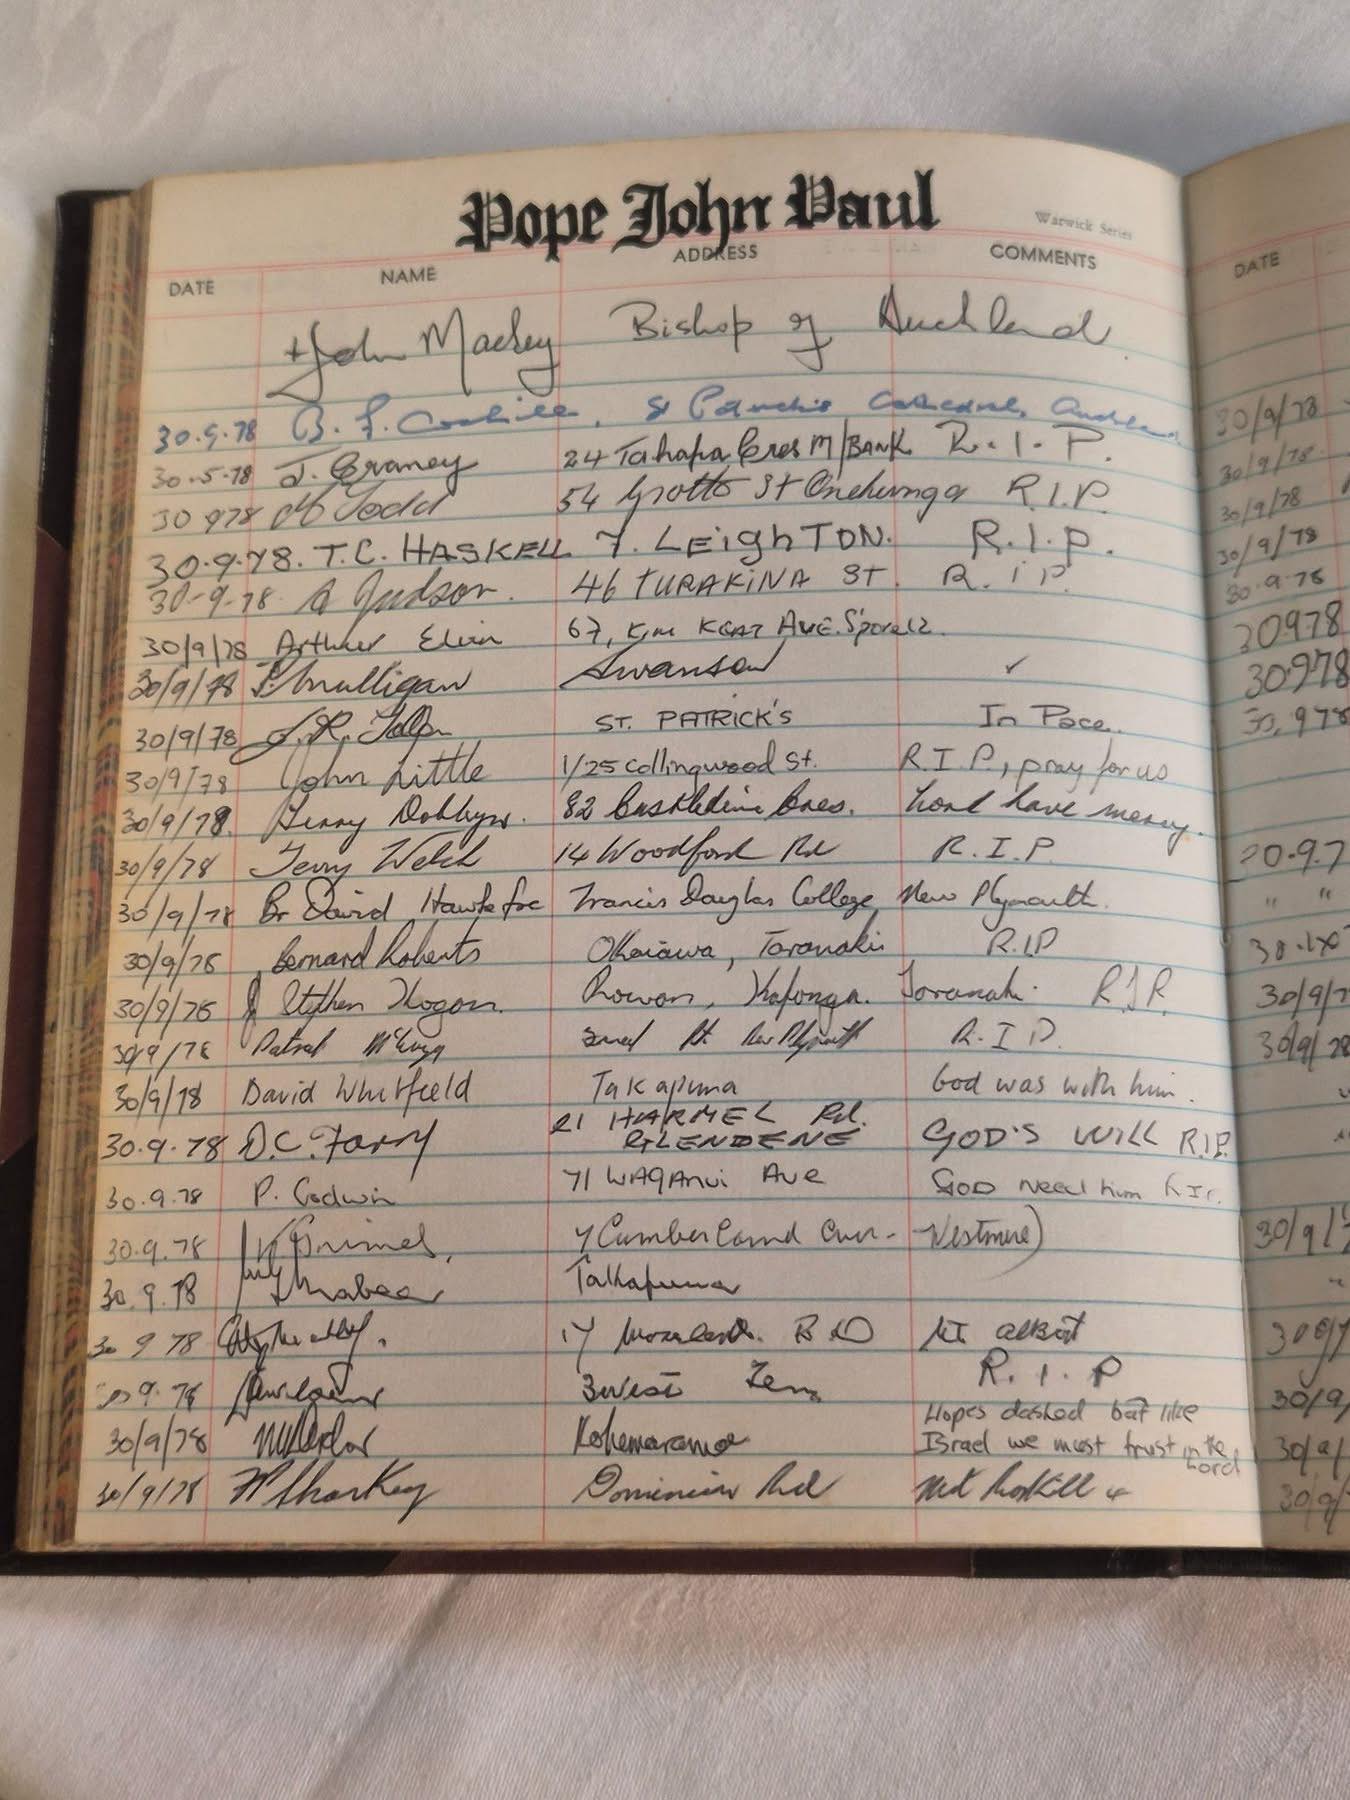 Pope John Paul
Warwick Series
DATE NAME ADDRESS COMMENTS DATE
+John Mackey Bishop of Auckland
30.9.78 B. F. St Patrick's Cathedral, Auckland 30/9/78
30.5.78 J. Craney 24 Tahapa Cres M/BANK R.I.P. 30/9/78
30 978 M Todd 54 Grotto St Onehunga R.I.P. 30/9/78
30.9.78. T.C. HASKELL 7. LEighTON. R.I.P. 30/9/78
30-9-78. A Judson. 46 TURAKINA ST. R.I.P. 30.9.78
30/9/78 Arthur 67, AVE. 30978
30/9/78 Mulligan Swanson ✓ 30978
30/9/78 J.R. ST. PATRICK'S In Pace. 30,978
30/9/78 John Little 1/25 Collingwood St. R.I.P., pray for us
30/9/78. Cres. Lord have mercy.
30/9/78 Terry Welch 14 Woodford Rd R.I.P. 30.9.7
30/9/78 Br David Hawke fsc Francis Douglas College New Plymouth. " "
30/9/78 Bernard Roberts Okaiawa, Taranaki R.I.P
30/9/78 Stephen Hogan. Rowan, Kaponga. Taranaki. R.I.P. 30/9/7
30/9/78 New Plymouth R.I.P. 30/9/78
30/9/78 David Whitfield Takapuna God was with him.
30.9.78 D.C. Farry 21 HARMEL Rd.
GLENDENE GOD'S WILL R.I.P.
30.9.78 P. Godwin 71 Ave GOD need him R.I.P.
30.9.78 Grimes, 7 Cumberland Westmere) 30/9/
30.9.78 Takapuna
30 9 78 17 RD Mt Albert
30 9.78 3 West R.I.P 30/9/
30/9/78 Kohimarama Hopes dashed but like
Israel we must trust in the
Lord
30/9/78 Sharkey Dominion Rd Mt Roskill 30/9/